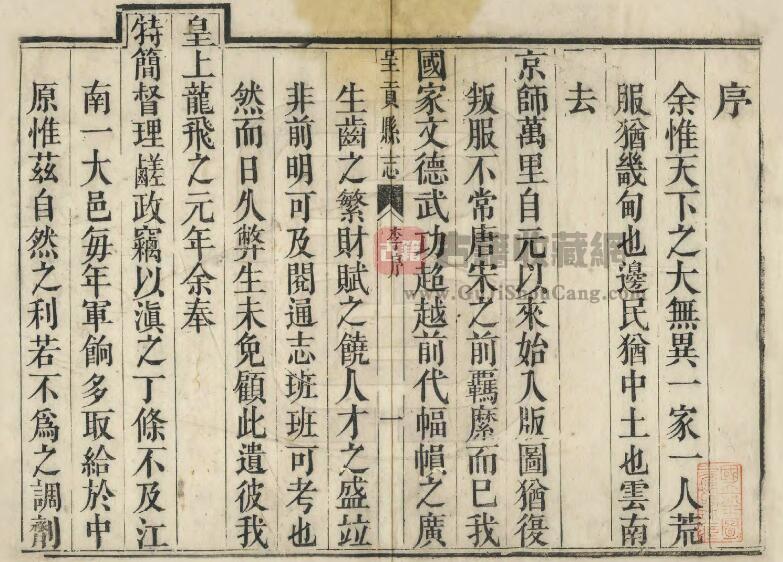 序
余惟天下之大無異一家一人荒
服猶畿甸也邊民猶中土也雲南
去
京師萬里自元以來始入版圖猶復
叛服不常唐宋之前羈縻而已我
國家文德武功超越前代幅幀之廣
呈貢縣志
李序
一
生齒之繁財賦之饒人才之盛竝
非前明可及閱通志班班可考也
然而日久弊生未免顧此遺彼我
皇上龍飛之元年余奉
特簡督理鹺政竊以滇之丁條不及江
南一大邑每年軍餉多取給於中
原惟茲自然之利若不爲之調劑
古籍
古籍收藏網
www.GujiShouCang.com